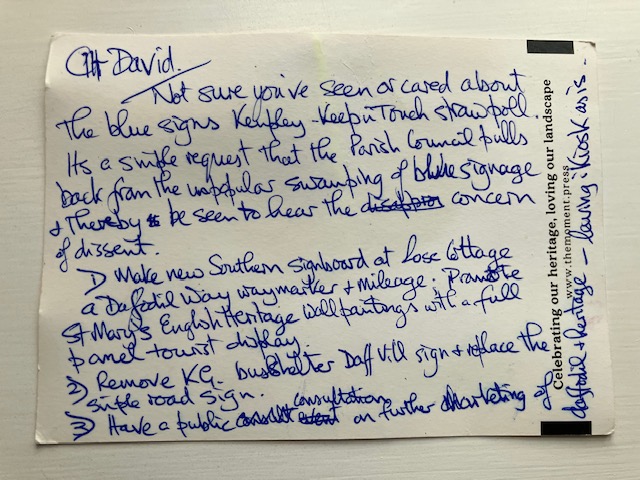 Cllr David.
Not sure you've seen or cared about
the blue signs Kempley Keep in Touch straw poll.
Its a simple request that the Parish Council pulls
back from the unpopular swamping of blue signage
& thereby be seen to hear the concern
of dissent.
1) Make new Southern signboard at Cottage
a Daffodil Way waymarker & mileage. Promote
St Mary's English Heritage Wall paintings with a full
panel tourist display.
2) Remove KG. bus shelter Daff Vill sign & replace the
simple road sign.
3) Have a public consultation on further Marketing of
daffodil & heritage – leaving Kiosk as is.
Celebrating our heritage, loving our landscape
www.themoment.press